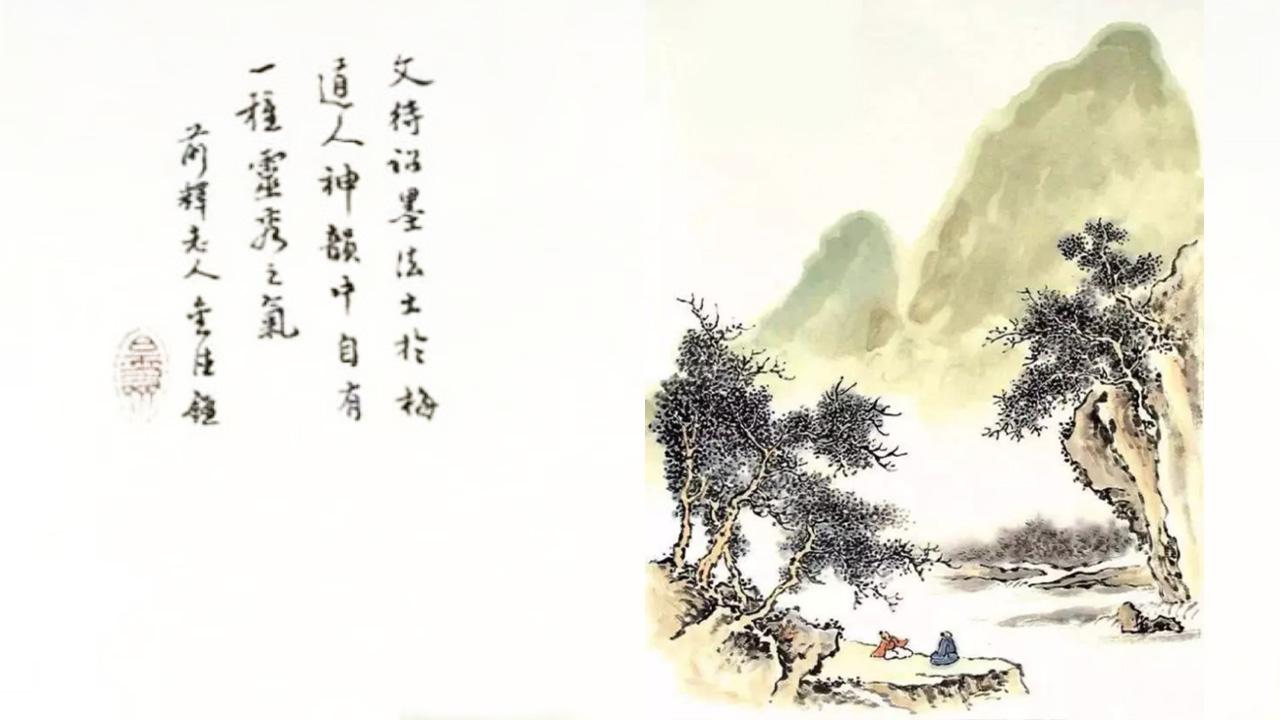 文待詔墨法出於梅
道人神韻中自有
一種靈秀之氣
前輝老人金德鑑